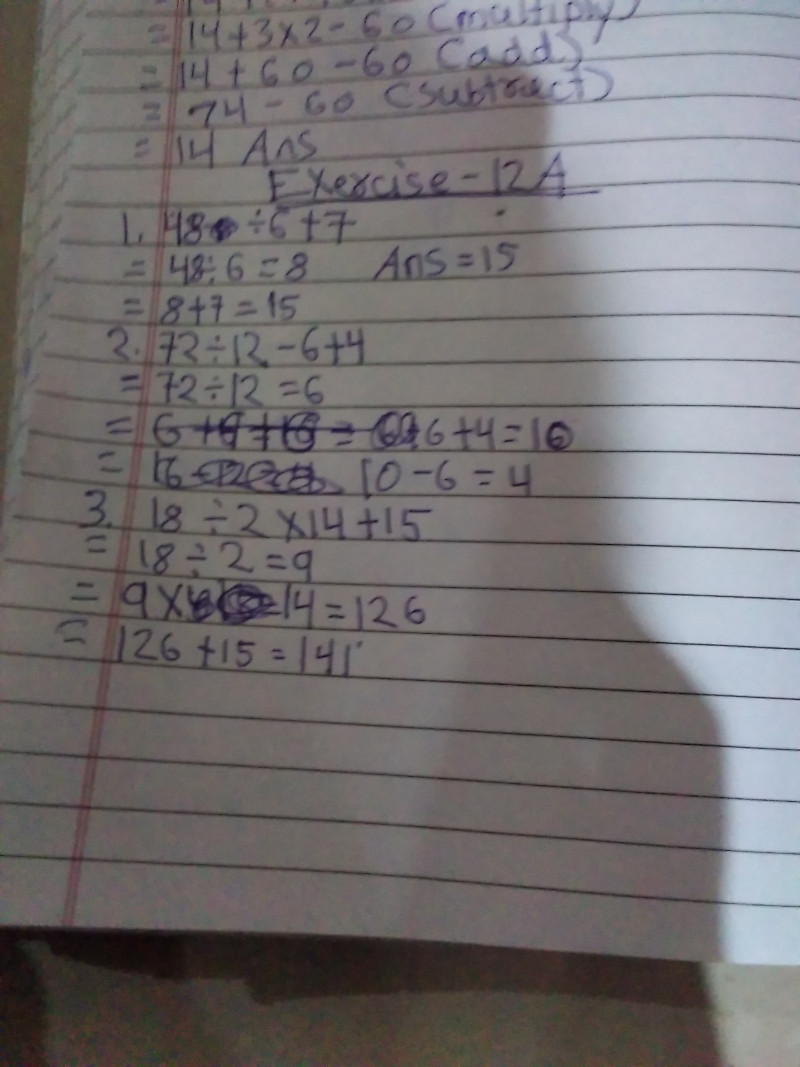 = 14+3×2-60 (multiply)
= 14 + 60 - 60 (add)
= 74 - 60 (subtract)
= 14 Ans
Exercise - 12A
1. 48 ÷ 6 + 7
= 48 ÷ 6 = 8 Ans = 15
= 8+7 = 15
2. 72 ÷ 12 - 6+4
= 72 ÷ 12 = 6
= 6 + 4 = 10
= 10 - 6 = 4
3. 18 ÷ 2 × 14 + 15
= 18 ÷ 2 = 9
= 9 × 14 = 126
= 126 + 15 = 141